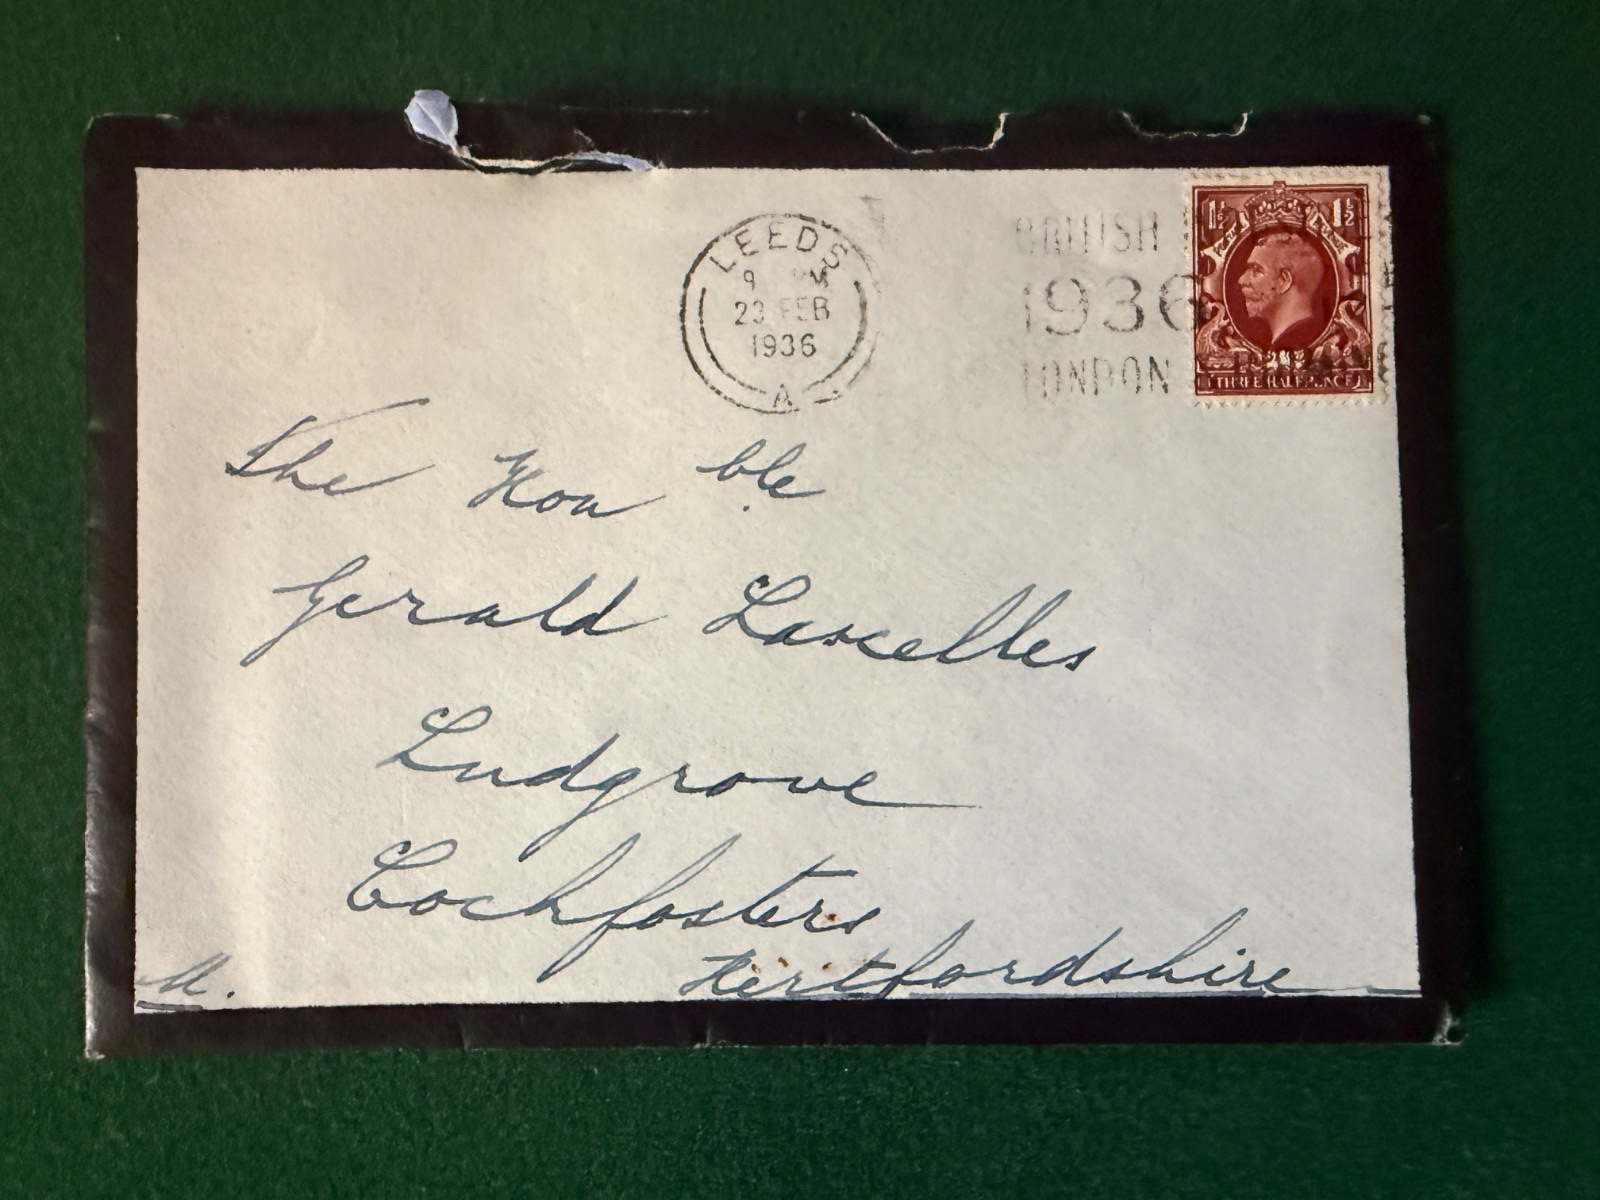 LEEDS
9 PM
23 FEB
1936
A
BRITISH
1936
LONDON &
1½ 1½
THREE HALFPENCE
The Honble
Gerald Lascelles
Ludgrove
Cockfosters
Hertfordshire
M.